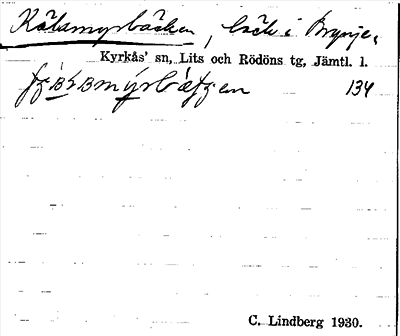 Kälamyrbäcken, bäck i Brynje,
Kyrkås' sn, Lits och Rödöns tg, Jämtl. l.
134
C. Lindberg 1930.